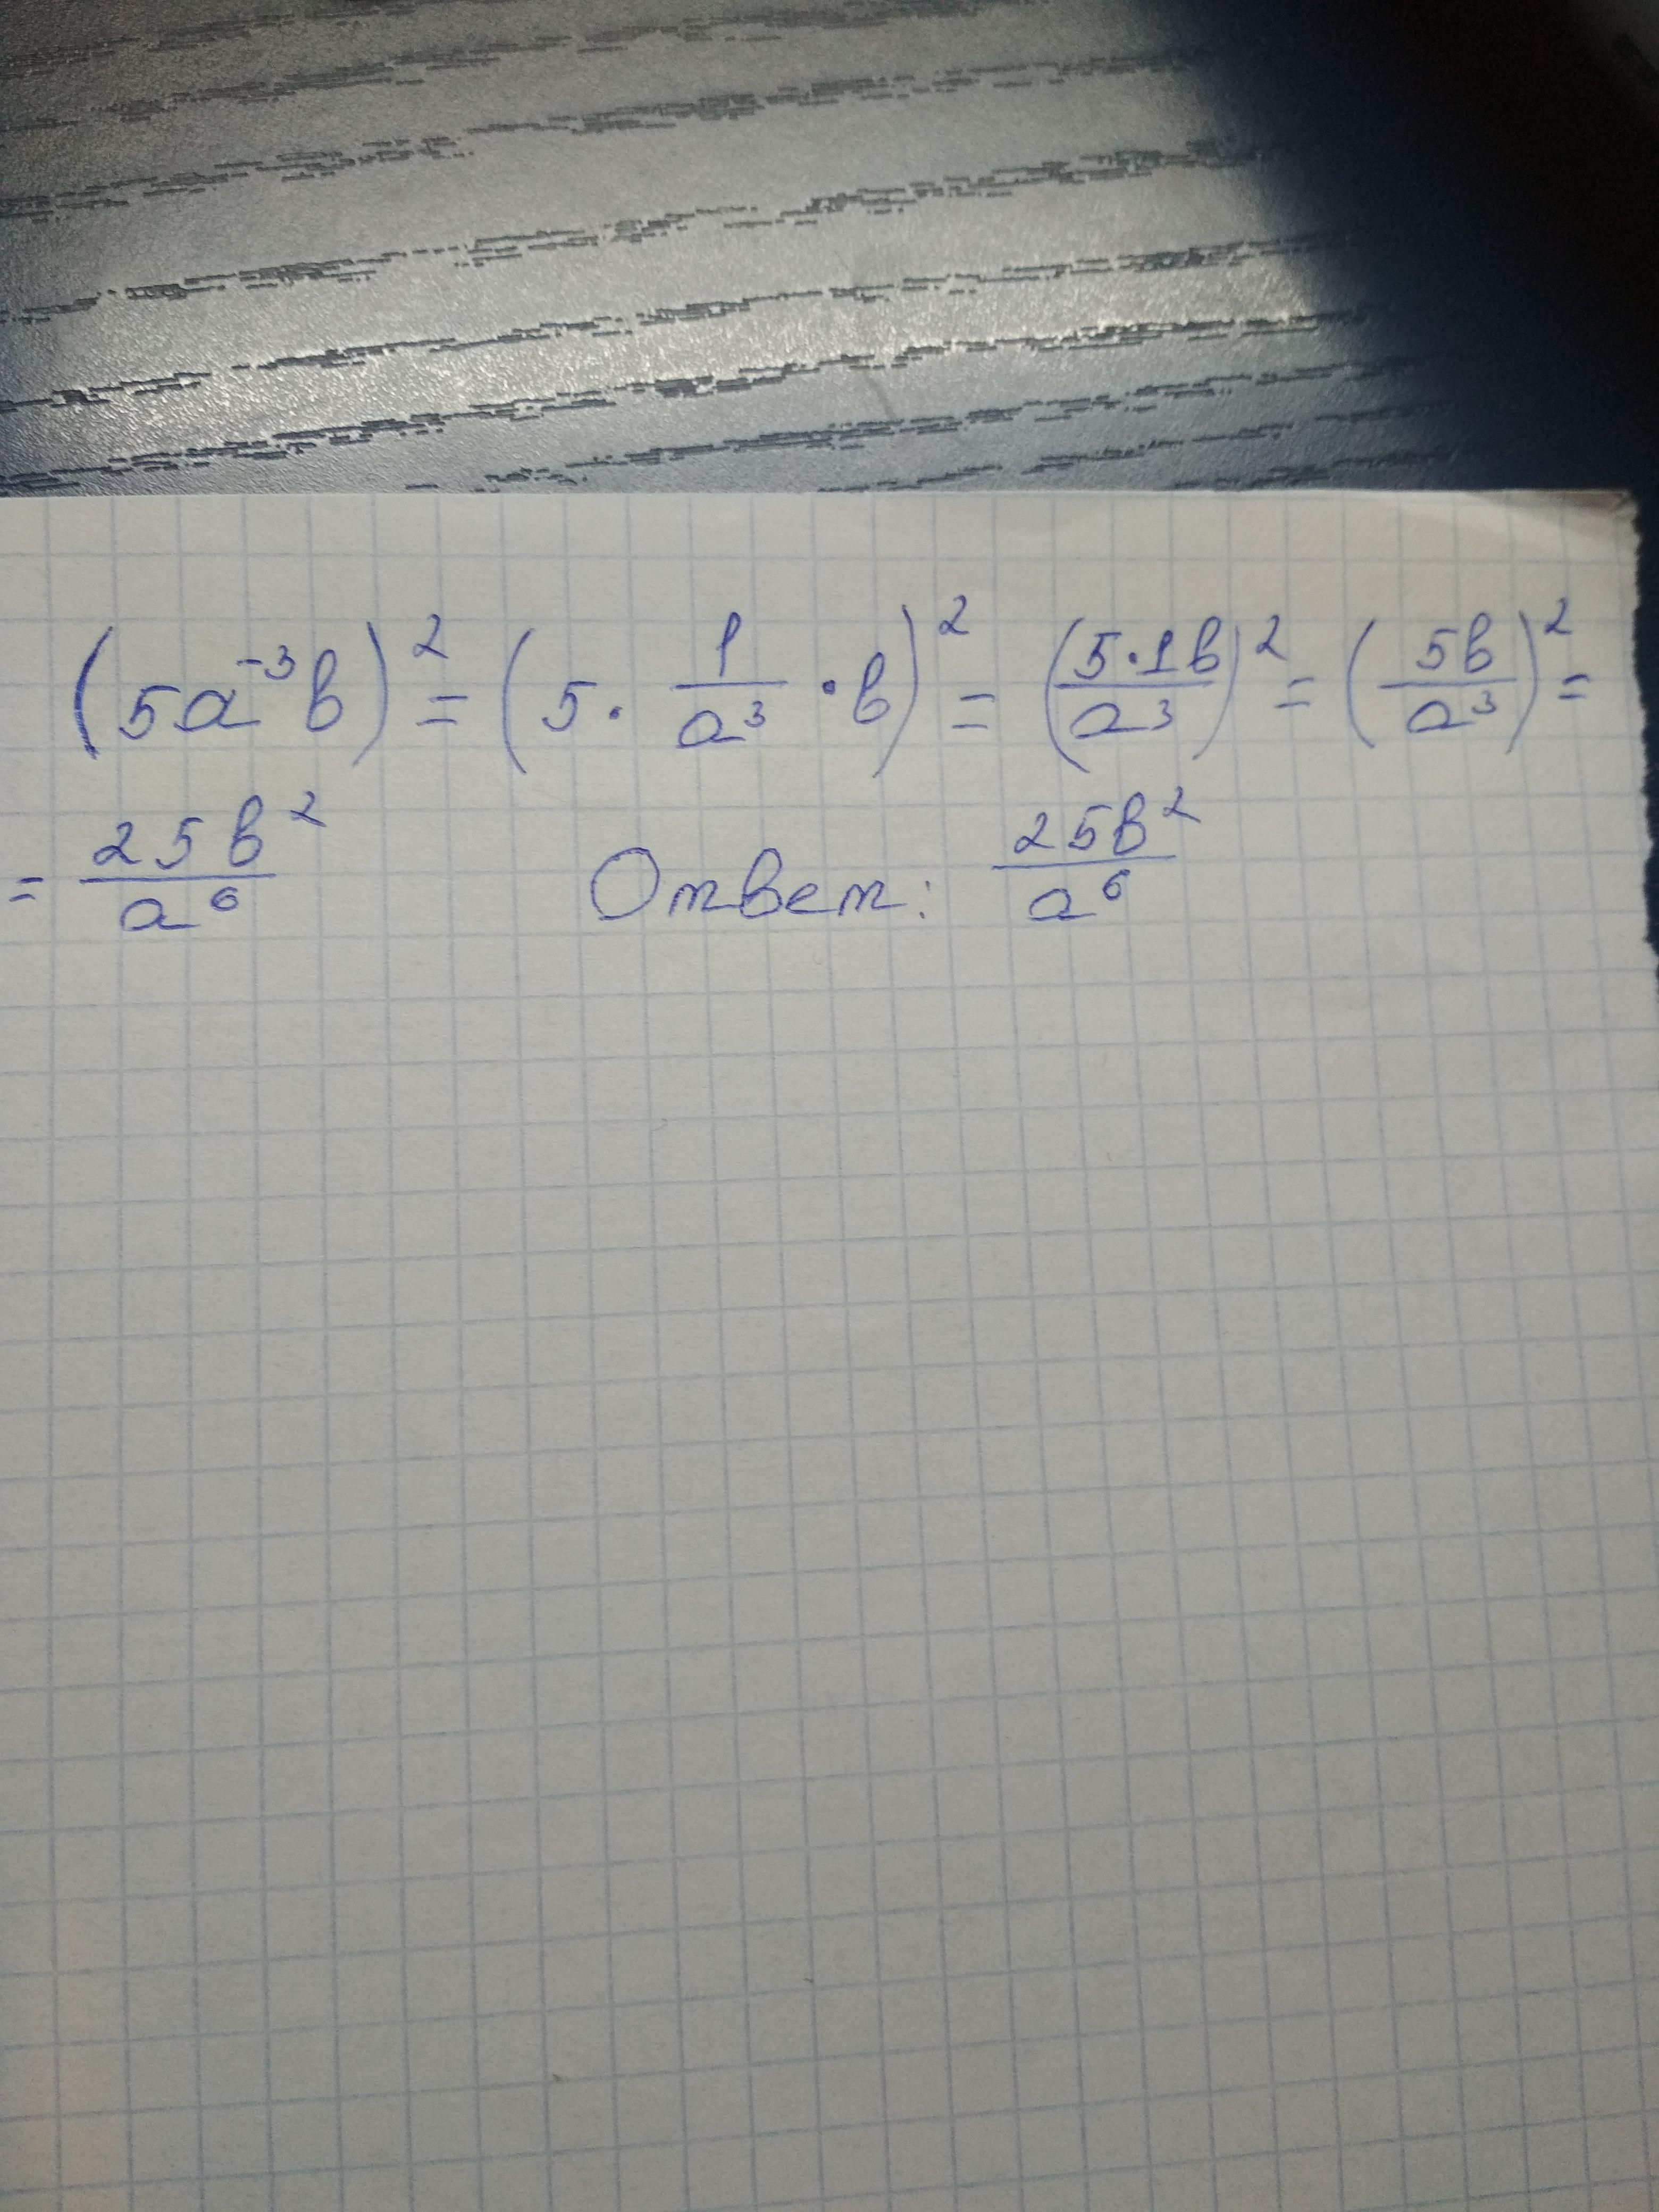 (5a⁻³b)² = (5 · 1/a³ · b)² = (5·1b/a³)² = (5b/a³)² =
= 25b²/a⁶ Ответ: 25b²/a⁶